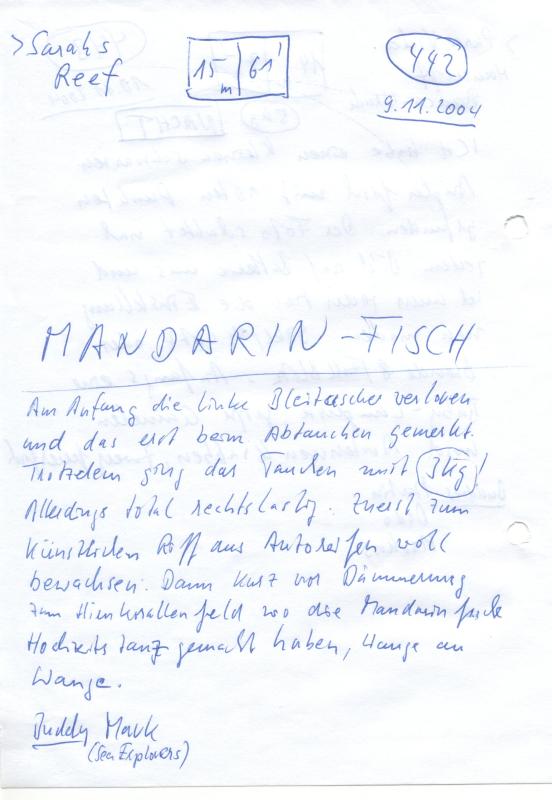 > Sarahs
Reef
15 m | 61'
442
9.11.2004
MANDARIN-FISCH
Am Anfang die linke Bleitasche verloren
und das erst beim Abtauchen gemerkt.
Trotzdem ging das Tauchen mit 3kg!
Allerdings total rechtslastig. Zuerst zum
künstlichen Riff aus Autoreifen voll
bewachsen. Dann kurz vor Dämmerung
zum Hirnkorallenfeld wo die Mandarinfische
Hochzeitstanz gemacht haben, Wange an
Wange.
Buddy Mark
(Sea Explorers)